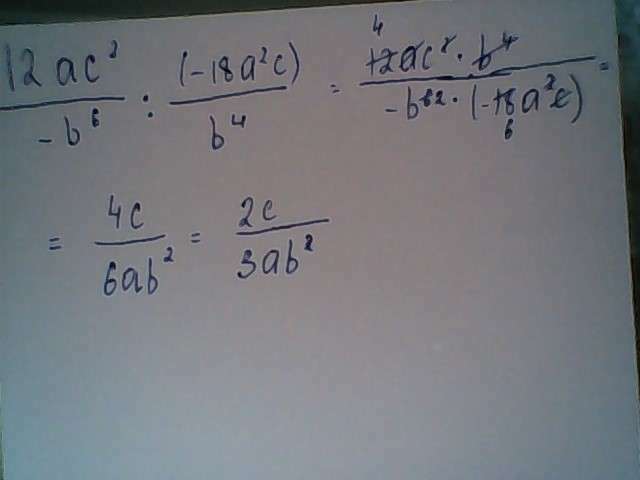 12ac² / -b⁶ : (-18a²c) / b⁴ = 4 12ac² · b⁴ / -b⁶² · (-18a²c) 6 =
= 4c / 6ab² = 2c / 3ab²